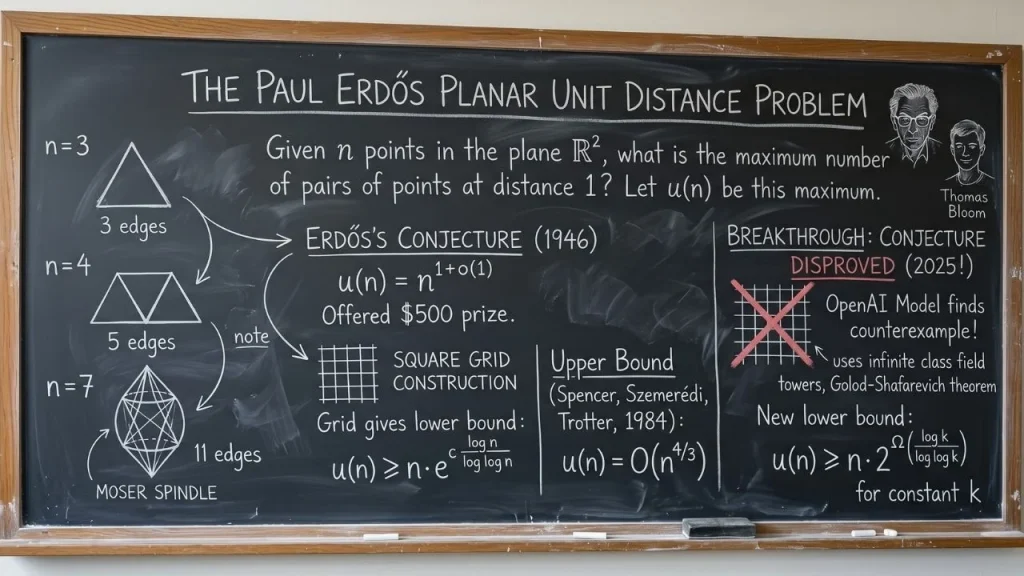 THE PAUL ERDŐS PLANAR UNIT DISTANCE PROBLEM
Given n points in the plane ℝ², what is the maximum number
of pairs of points at distance 1? Let u(n) be this maximum.
n=3
3 edges
n=4
5 edges
note
n=7
11 edges
MOSER SPINDLE
ERDŐS'S CONJECTURE (1946)
u(n) = n^{1+o(1)}
Offered $500 prize.
SQUARE GRID
CONSTRUCTION
Grid gives lower bound:
u(n) ≥ n·e^{c \frac{log n}{log log n}}
Upper Bound
(Spencer, Szemerédi,
Trotter, 1984):
u(n) = O(n^{4/3})
Thomas
Bloom
BREAKTHROUGH: CONJECTURE
DISPROVED (2025!)
OpenAI Model finds
counterexample!
uses infinite class field
towers, Golod-Shafarevich theorem
New lower bound:
u(n) ≥ n·2^{Ω(\frac{log k}{log log k})}
for constant k